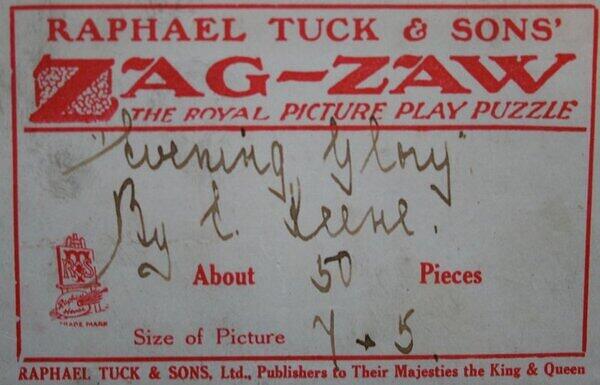 RAPHAEL TUCK & SONS'
ZAG-ZAW
THE ROYAL PICTURE PLAY PUZZLE
"Evening Glory"
By E. Keene.
About 50 Pieces
RTS
Raphael House
TRADE MARK
Size of Picture 7 + 5
RAPHAEL TUCK & SONS, Ltd., Publishers to Their Majesties the King & Queen